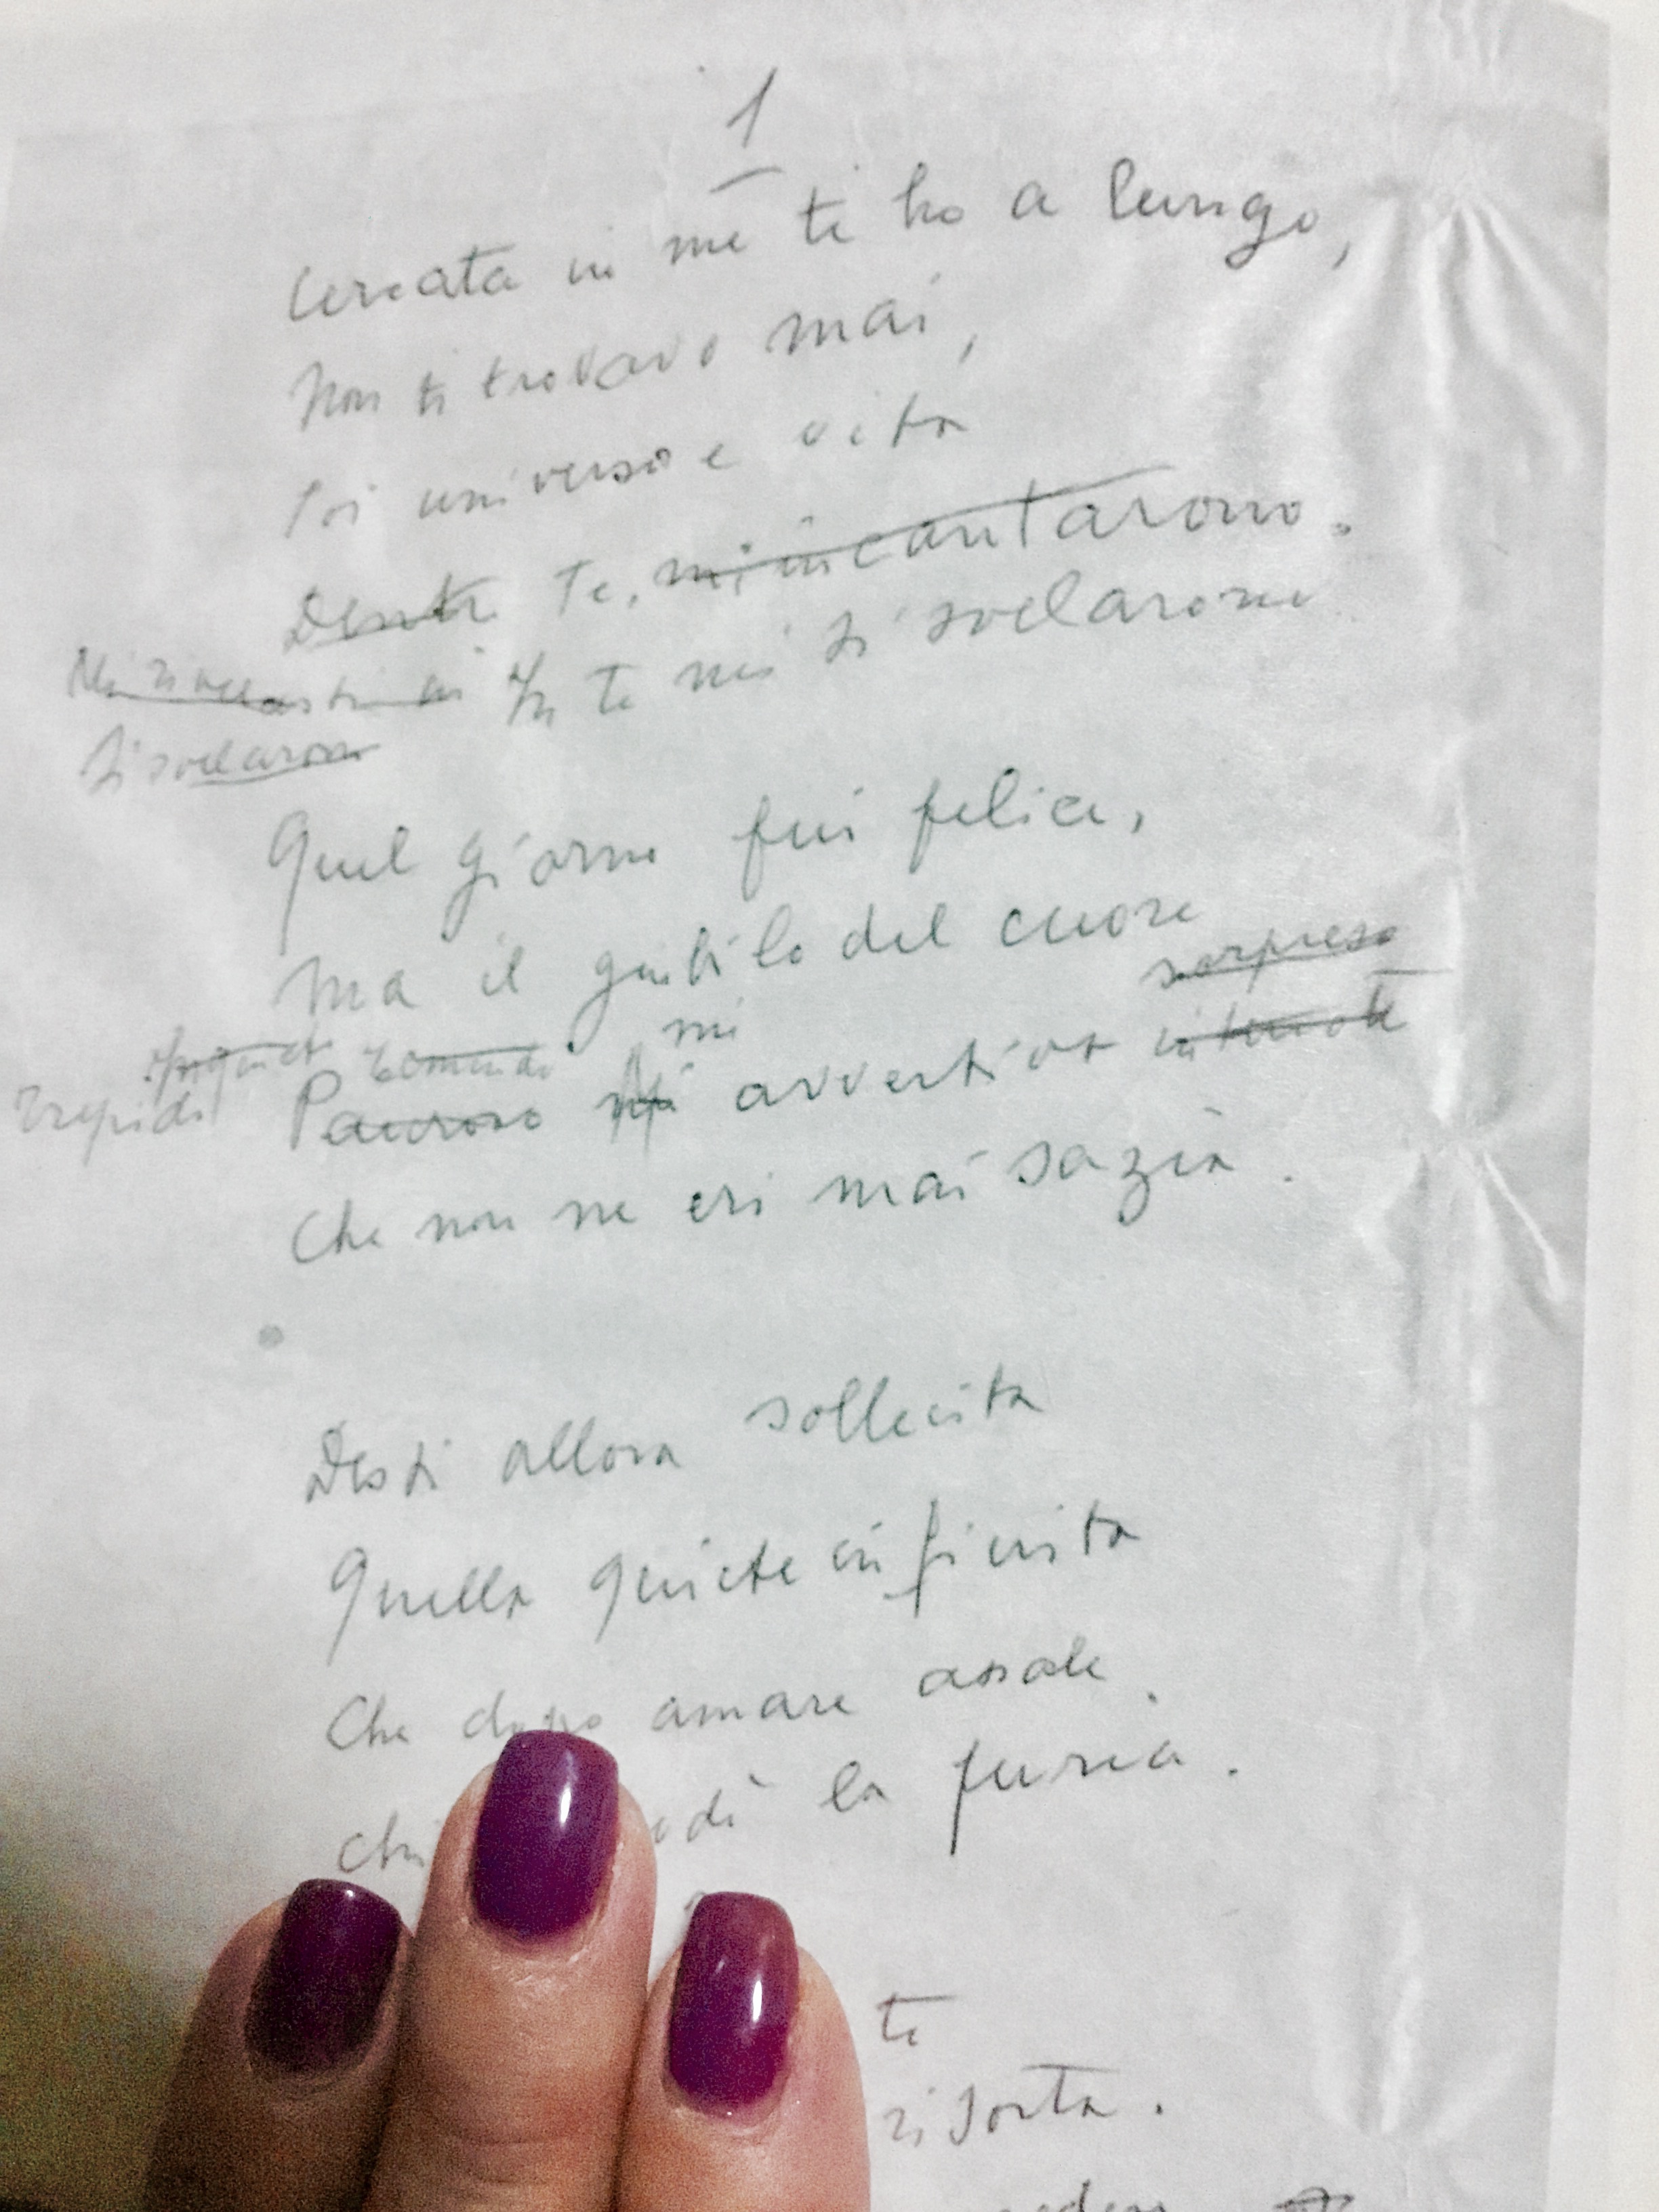 1
Cercata in me ti ho a lungo,
Non ti trovavo mai,
Poi universo e vita
Dentro Te, mi incantarono.
In te mi si svelarono
si svelarono
Quel giorno fui felice,
Ma il giubilo del cuore
sorpreso
mi
Trepido Pauroso avvertiva
Che non ne eri mai sazia.
Desti allora sollecita
Quella quiete infinita
Che dopo amare assale
la furia.
te
risorta.